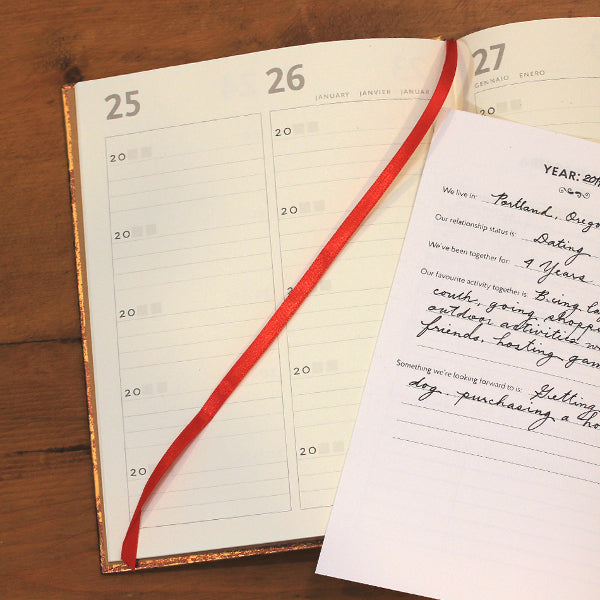 25
20
20
20
20
20
26
JANUARY JANVIER JANUAR
20
20
20
20
20
27
GENNAIO ENERO
20
YEAR:
We live in: Portland, Orego
Our relationship status is: Dating
We've been together for: 4 Years
Our favourite activity together is: Being
couch, going shoppi
outdoor activities
friends, hosting gam
Something we're looking forward to is: Getting
dog, purchasing a ho